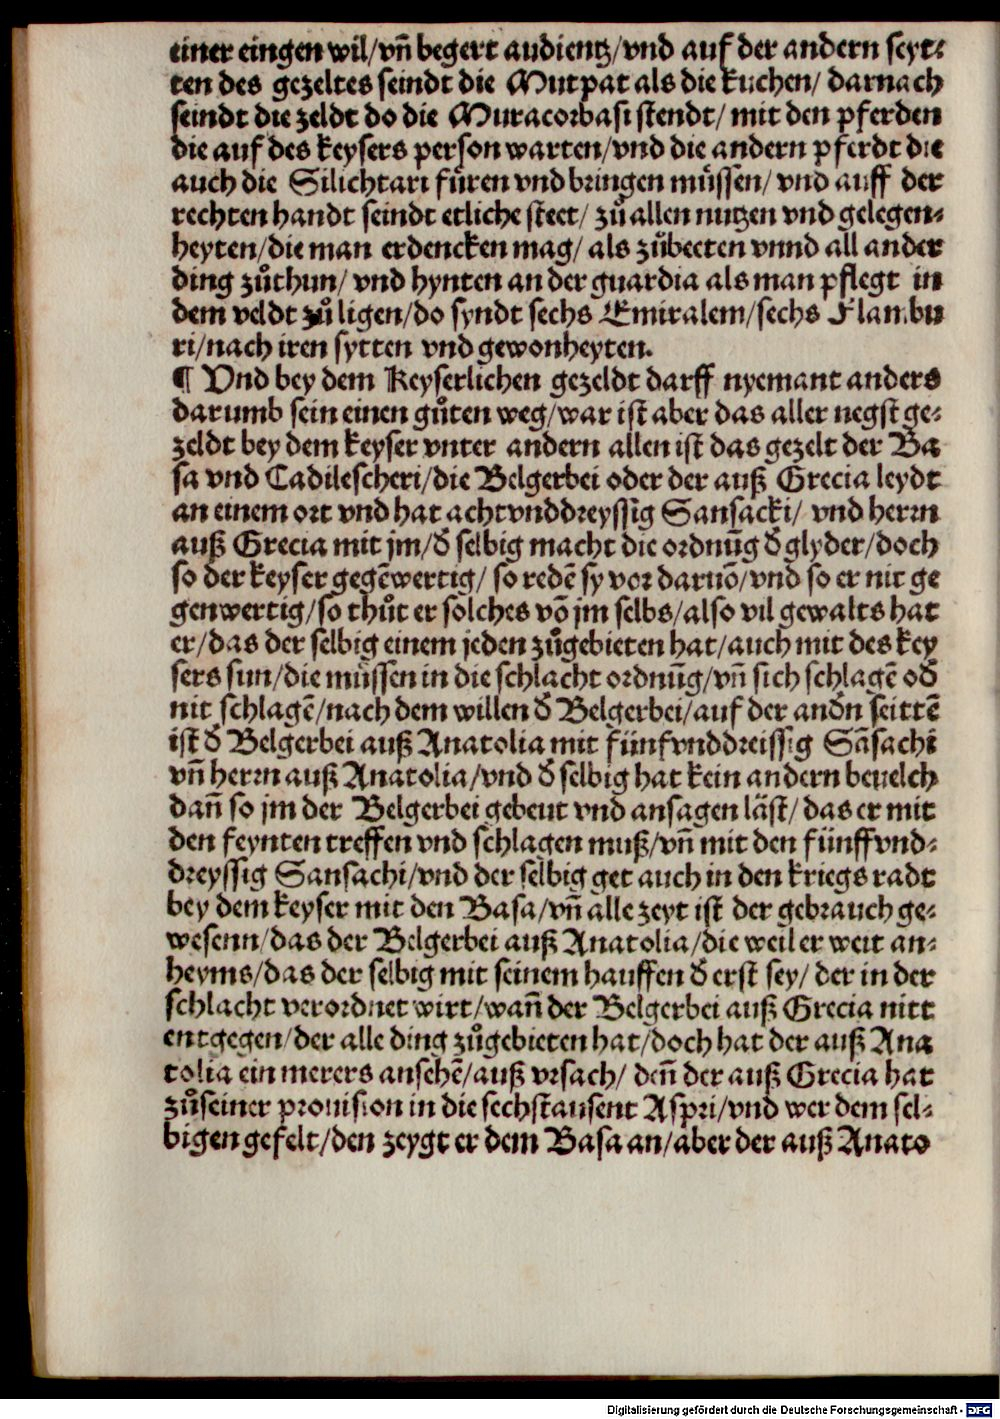 einer eingen wil/vñ begert audientz/vnd auf der andern seyt⸗
ten des gezeltes seindt die Mutpat als die kuchen/ darnach
seindt die zeldt do die Muracorbasi stendt/ mit den pferden
die auf des keysers person warten/vnd die andern pferdt die
auch die Silichtari füren vnd bringen müssen/ vnd auff der
rechten handt seindt etliche steet/ zů allen nutzen vnd gelegen⸗
heyten/die man erdencken mag/ als zůbeeten vnnd all ander
ding zůthun/ vnd hynten an der guardia als man pflegt in
dem veldt zů ligen/do syndt sechs Emiralem/sechs Flambu
ri/nach iren sytten vnd gewonheyten.
¶ Vnd bey dem Keyserlichen gezeldt darff nyemant anders
darumb sein einen gůten weg/war ist aber das aller negst ge⸗
zeldt bey dem keyser vnter andern allen ist das gezelt der Ba
sa vnd Cadilescheri/die Belgerbei oder der auß Grecia leydt
an einem ort vnd hat achtvnddreyssig Sansacki/ vnd herrn
auß Grecia mit jm/ď selbig macht die ordnūg ď glyder/doch
so der keyser gegēwertig/ so redē sy vor daruō/vnd so er nit ge
genwertig/so thůt er solches vō jm selbs/also vil gewalts hat
er/das der selbig einem jeden zůgebieten hat/auch mit des key
sers sun/die müssen in die schlacht ordnūg/vñ sich schlagē oď
nit schlagē/nach dem willen ď Belgerbei/auf der anďn seittē
ist ď Belgerbei auß Anatolia mit fünfvnddreissig Sāsachi
vñ herrn auß Anatolia/vnd ď selbig hat kein andern beuelch
dañ so jm der Belgerbei gebeut vnd ansagen läst/ das er mit
den feynten treffen vnd schlagen muß/vñ mit den fünffvnd⸗
dreyssig Sansachi/vnd der selbig get auch in den kriegs radt
bey dem keyser mit den Basa/vñ alle zeyt ist der gebrauch ge⸗
wesenn/das der Belgerbei auß Anatolia/die weil er weit an⸗
heyms/das der selbig mit seinem hauffen ď erst sey/ der in der
schlacht verordnet wirt/wañ der Belgerbei auß Grecia nitt
entgegen/der alle ding zůgebieten hat/doch hat der auß Ana
tolia ein merers ansehē/auß vrsach/ deñ der auß Grecia hat
zůseiner prouision in die sechstausent Aspri/vnd wer dem sel⸗
bigen gefelt/den zeygt er dem Basa an/aber der auß Anato
Digitalisierung gefördert durch die Deutsche Forschungsgemeinschaft - DFG